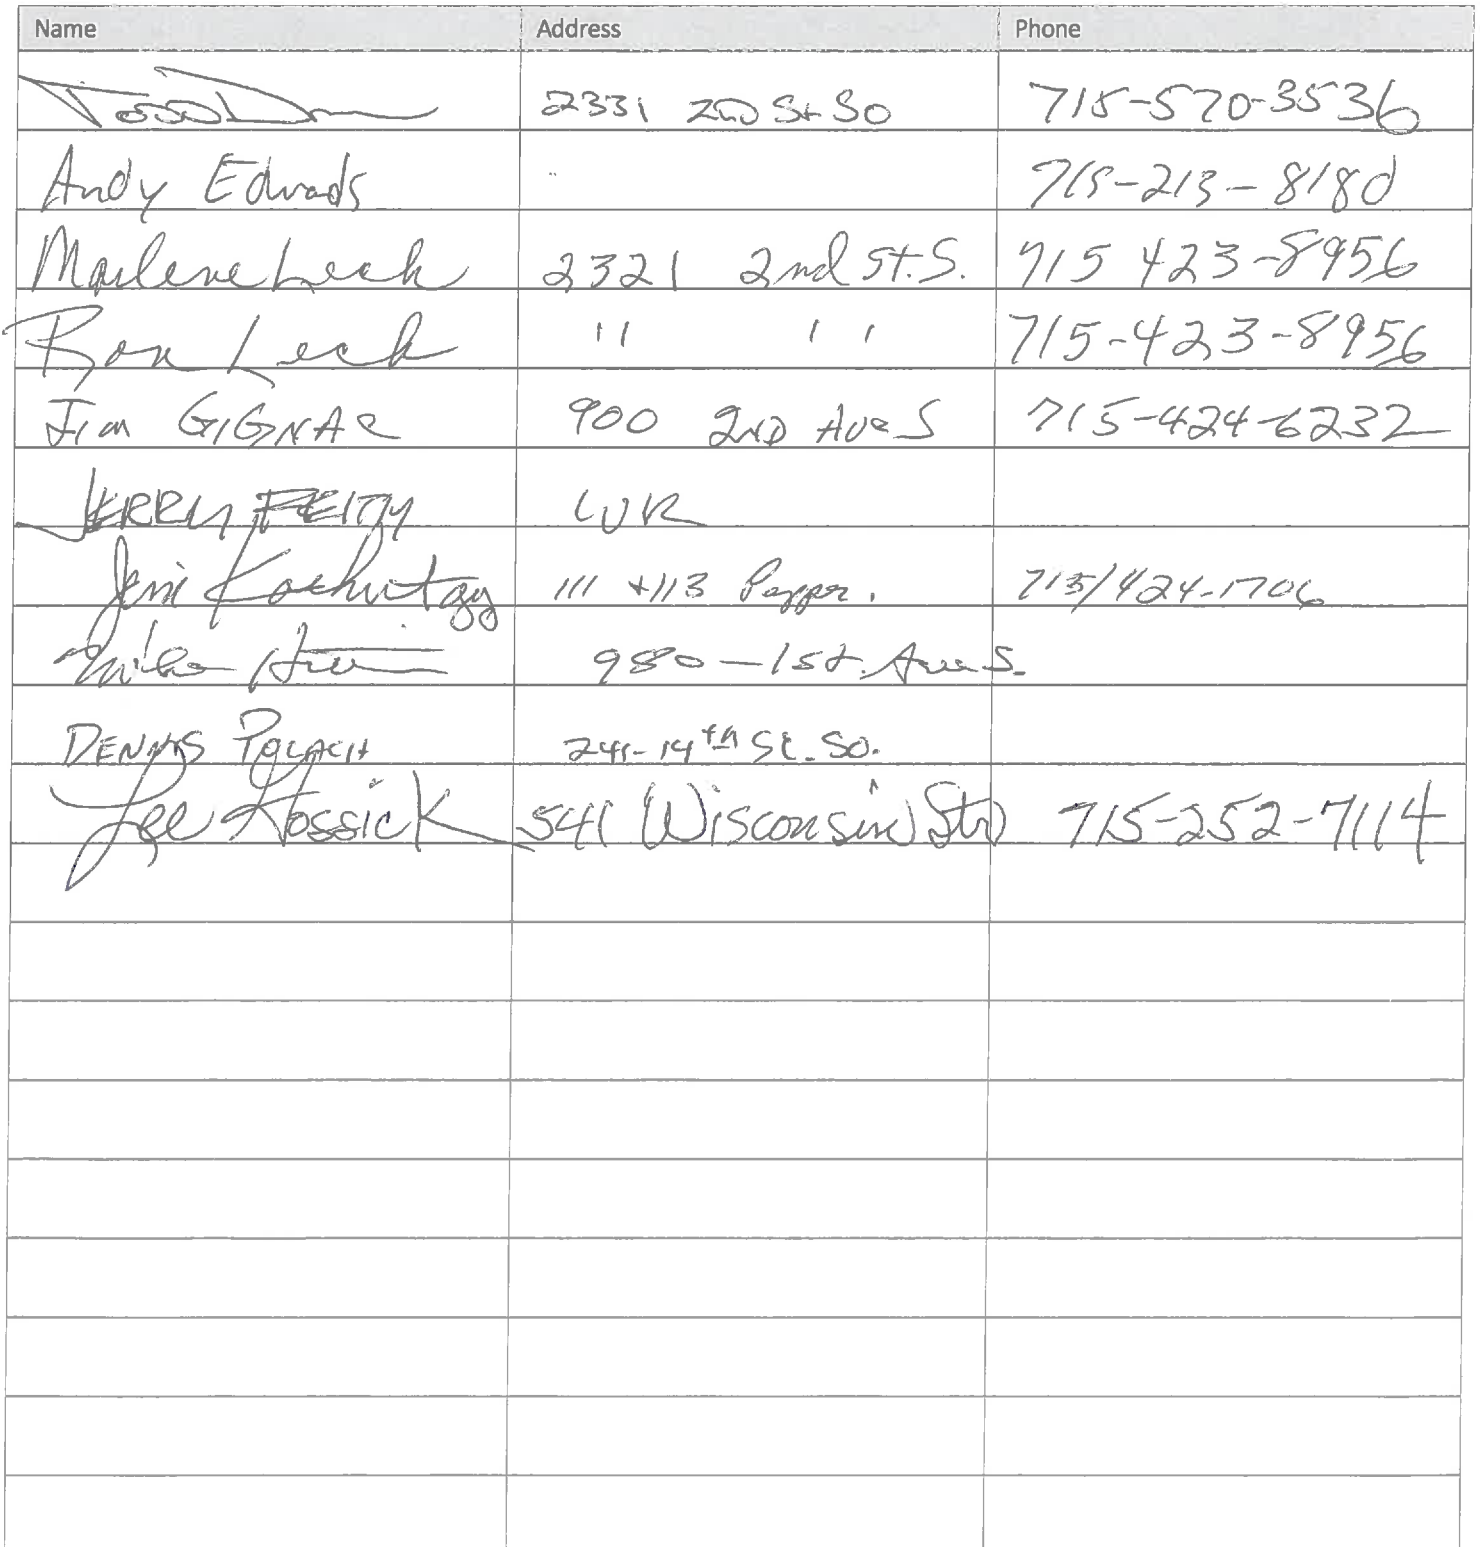 Name Address Phone
2331 2ND St So 715-570-3536
Andy Edwads 715-213-8180
Marlene Leck 2321 2nd St. S. 715 423-8956
Ron Leck " " 715-423-8956
Jim GIGNAC 900 2ND Ave S 715-424-6232
JERRY FEITH WR
111 +113 715/424-1706
Mike 980-1st. Ave S.
DENNIS POLACH 241-14th St. So.
Lee Hossick 541 Wisconsin Str 715-252-7114